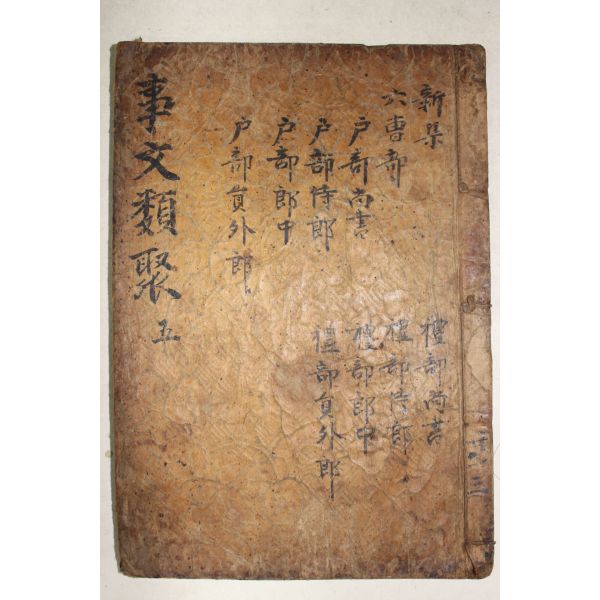 新集
六曹部
戶部尚書
戶部侍郎
戶部郎中
戶部員外郎
禮部尚書
禮部侍郎
禮部郎中
禮部員外郎
事文類聚
五
三